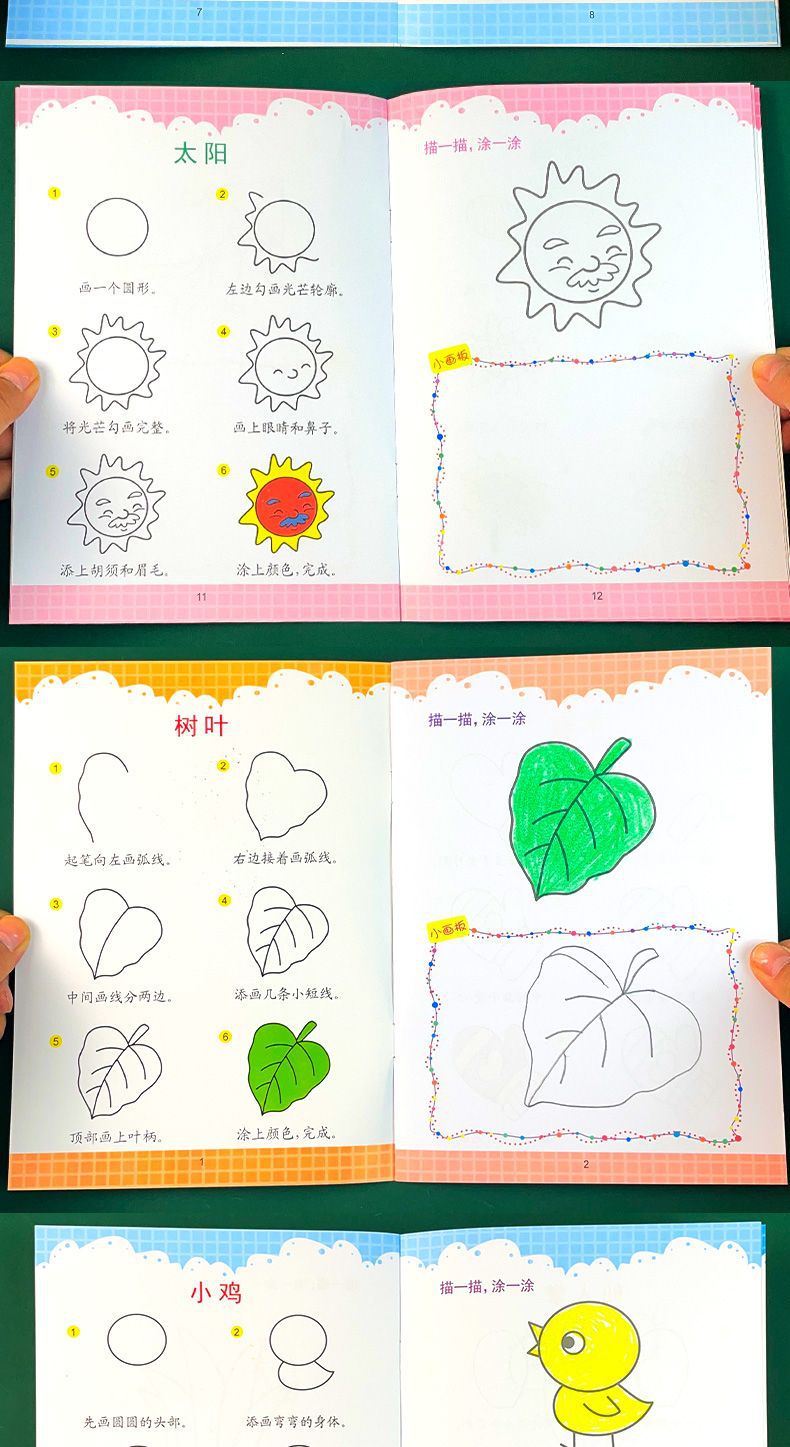 7
8
太阳
描一描，涂一涂
1
2
画一个圆形。
左边勾画光芒轮廓。
3
4
将光芒勾画完整。
画上眼睛和鼻子。
小画板
5
6
添上胡须和眉毛。
涂上颜色，完成。
11
12
树叶
描一描，涂一涂
1
2
起笔向左画弧线。
右边接着画弧线。
3
4
中间画线分两边。
添画几条小短线。
小画板
5
6
顶部画上叶柄。
涂上颜色，完成。
1
2
小鸡
描一描，涂一涂
1
2
先画圆圆的头部。
添画弯弯的身体。